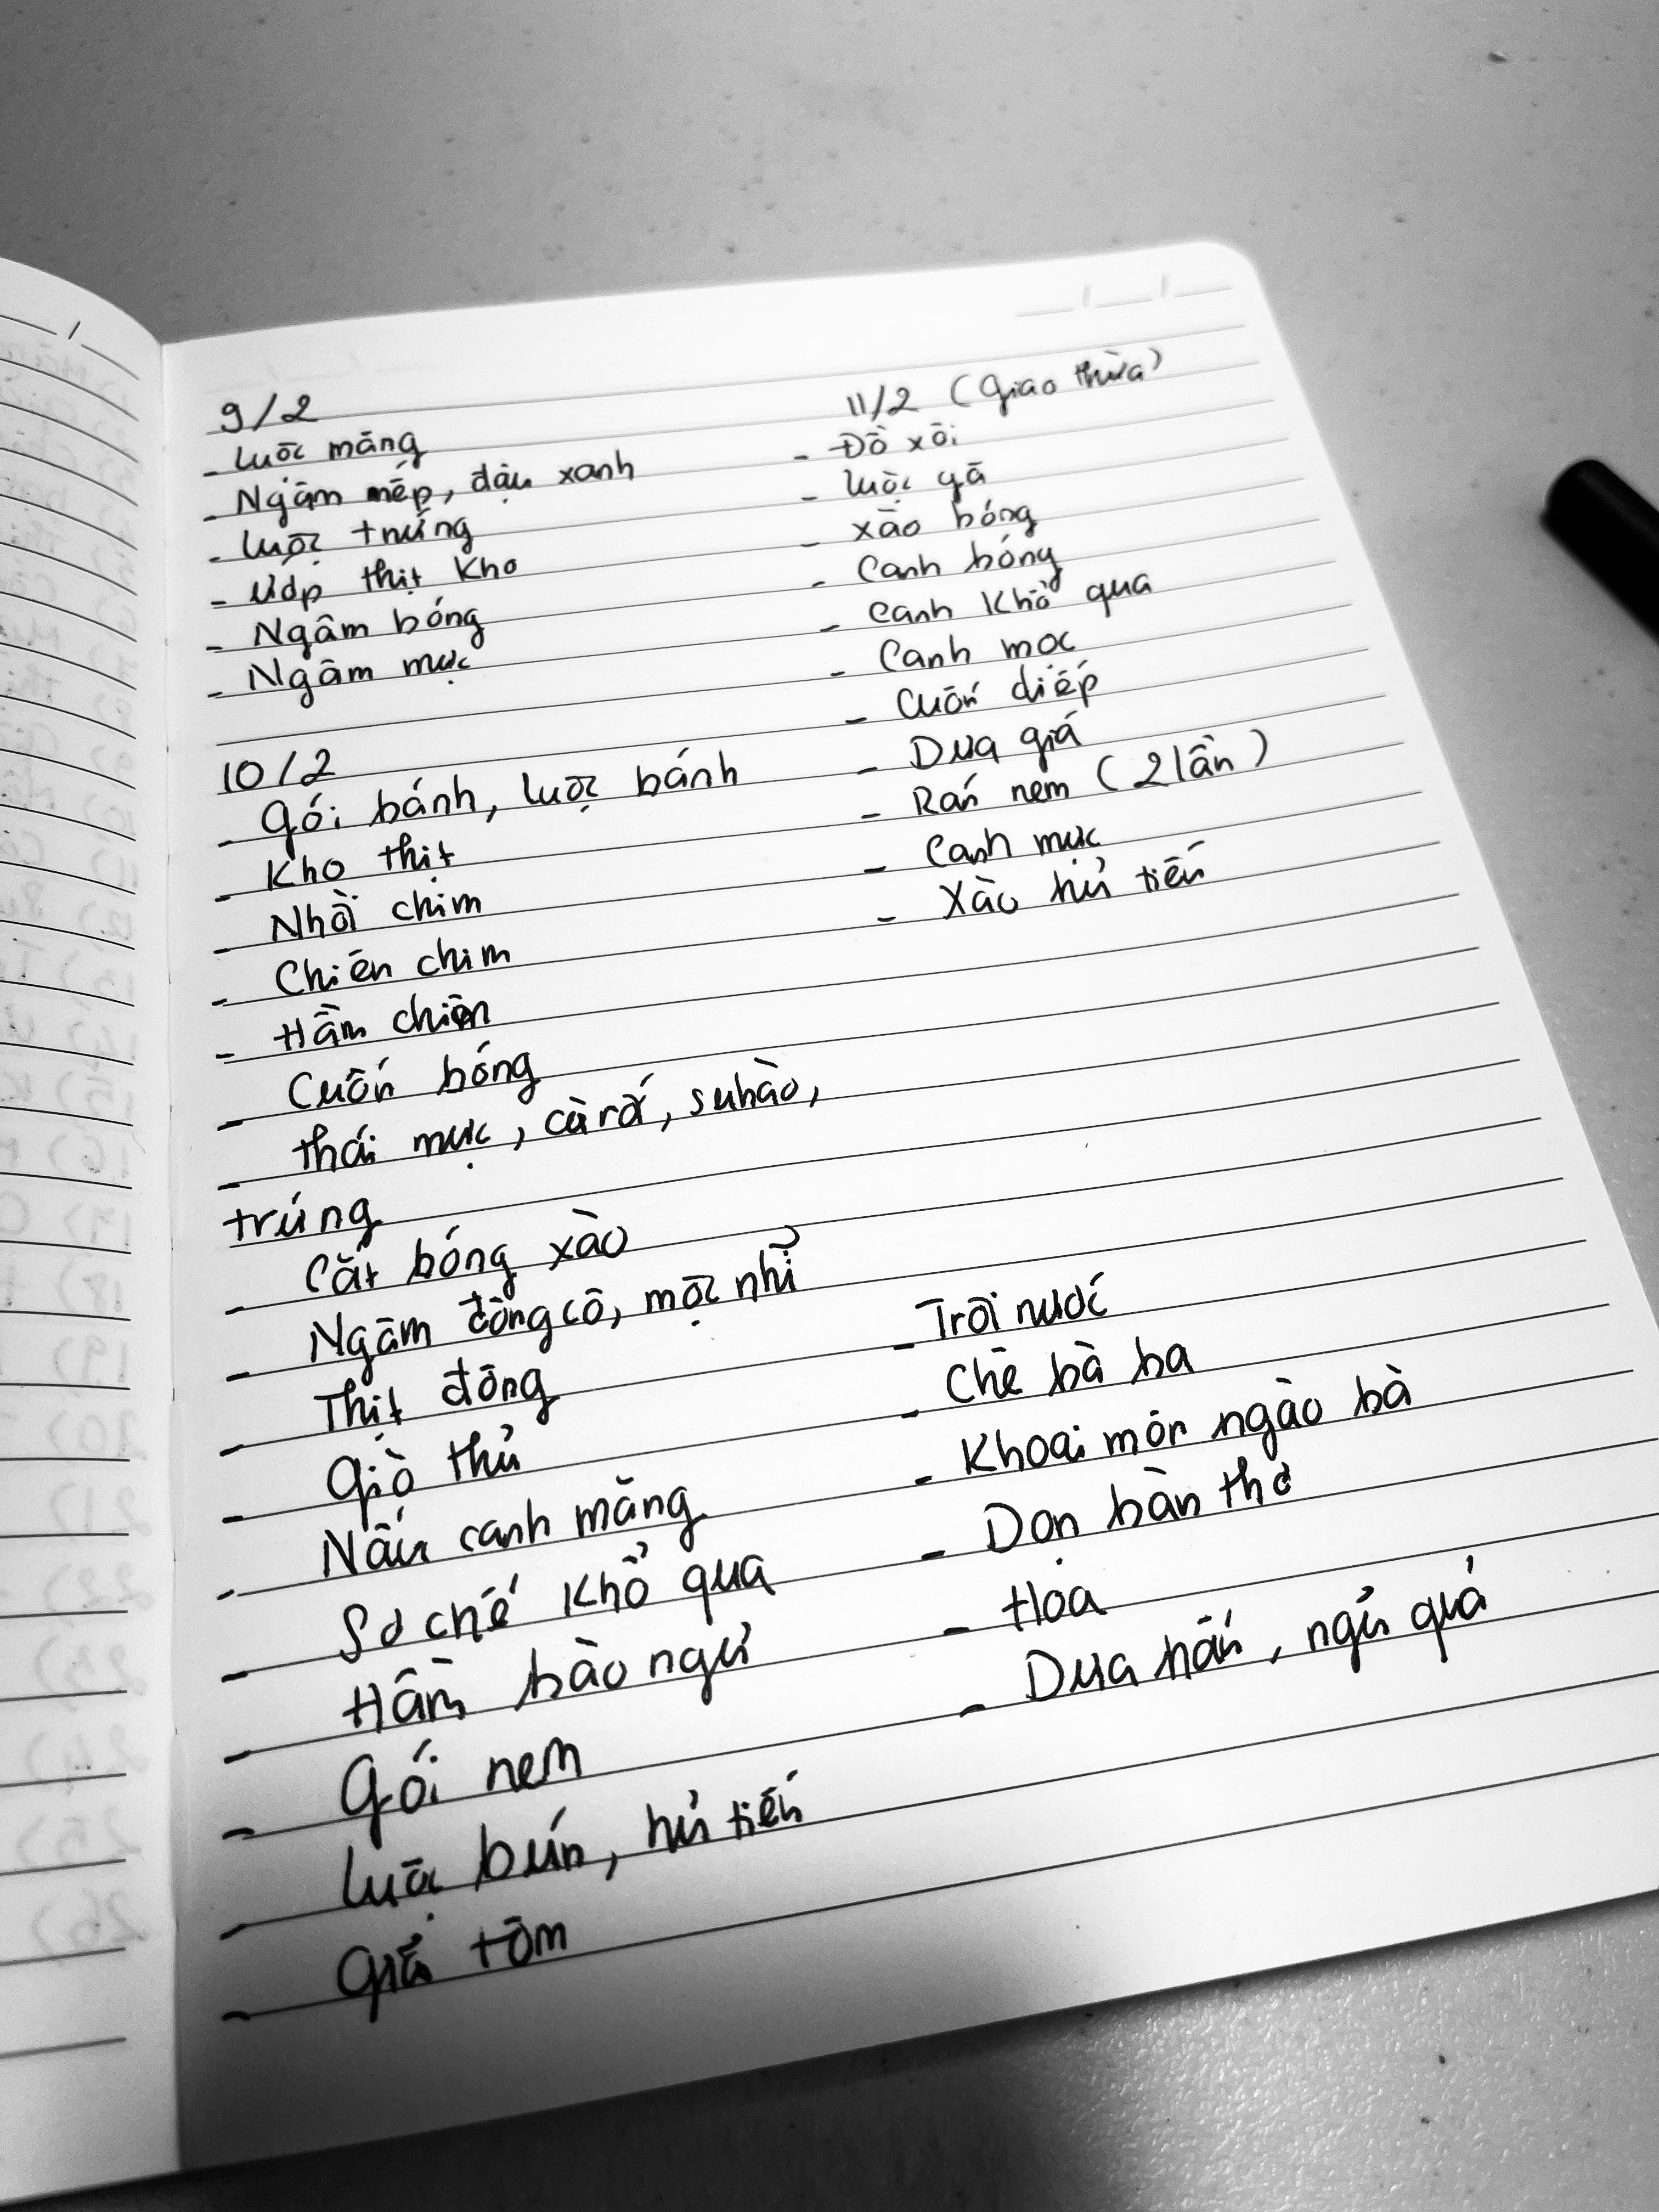 9/2
- Luộc măng
- Ngâm nếp, đậu xanh
- Luộc trứng
- Ướp thịt kho
- Ngâm bóng
- Ngâm mực
10/2
- Gói bánh, luộc bánh
- Kho thịt
- Nhồi chim
- Chiên chim
- Hầm chim
- Cuốn bóng
- Thái mực, cà rốt, su hào,
trứng
- Cắt bóng xào
- Ngâm đông cô, mộc nhĩ
- Thịt đông
- Giò thủ
- Nấu canh măng
- Sơ chế khổ qua
- Hầm bào ngư
- Gói nem
- Luộc bún, hủ tiếu
- Giã tôm
11/2 (Giao thừa)
- Đồ xôi
- Luộc gà
- Xào bóng
- Canh bóng
- Canh khổ qua
- Canh mọc
- Cuốn diếp
- Dưa giá
- Rán nem (2 lần)
- Canh mực
- Xào hủ tiếu
- Trôi nước
- Chè bà ba
- Khoai môn ngào bà
- Dọn bàn thờ
- Hoa
- Dưa hấu, ngũ quả